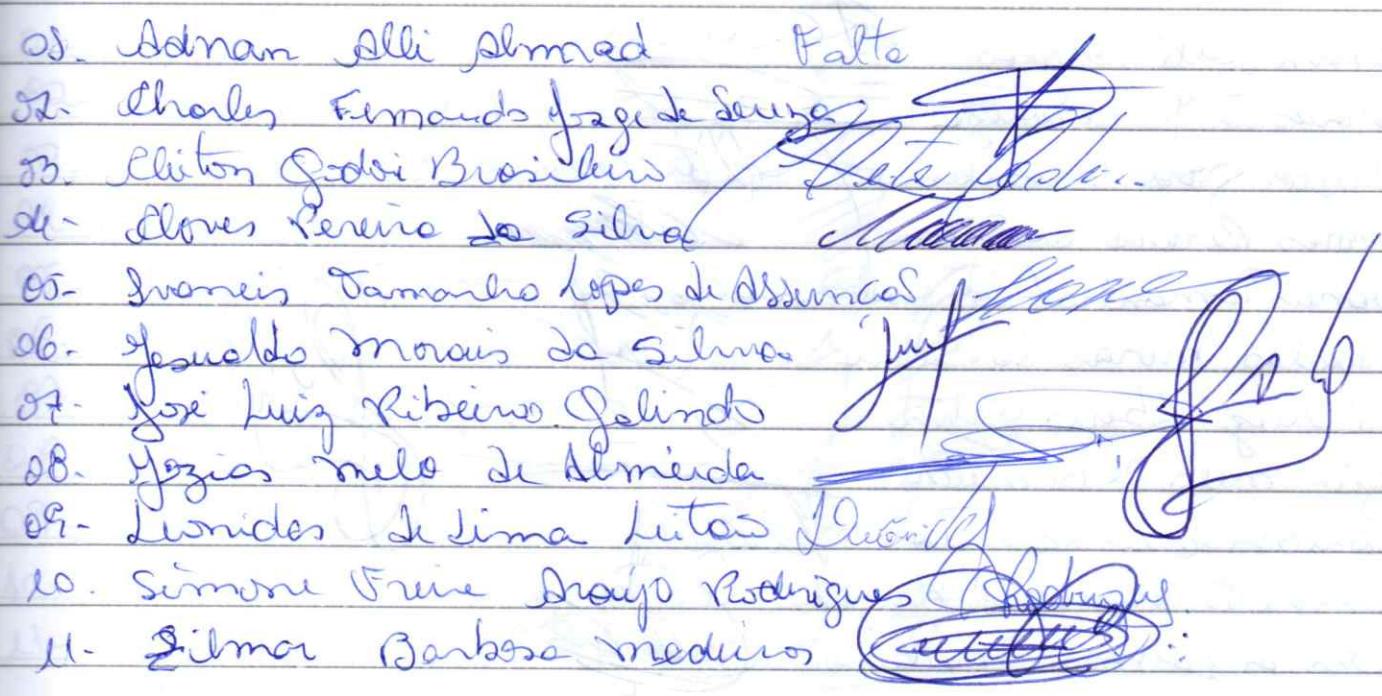 01. Adnan Alli Ahmad Falta
02- Charles Fernando Jorge de Souza
03. Cleiton Godoi Brasileiro
04- Cloves Pereira da Silva
05- Ivaneis Tamanho Lopes de Assunção
06- Jesualdo Morais da Silva
07- José Luiz Ribeiro Galindo
08- Jozias Melo de Almeida
09- Leonidas de Lima Leitão
10. Simone Freire Araújo Rodrigues Rodrigues
11- Zilmar Barbosa Medeiros